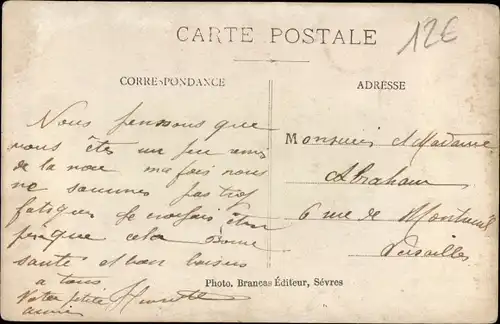 CARTE POSTALE
12€
CORRESPONDANCE
ADRESSE
Nous penssons que
vous êtes un peu
de la noce ma fois nous
ne sommes pas trop
fatigués je croyais être
plus que cela Bonne
santé et bon baisers
à tous
Votre petite Henriette
amie
Monsieur et Madame
Abraham
6 rue de Montreuil
Versailles
Photo. Brancas Éditeur, Sèvres